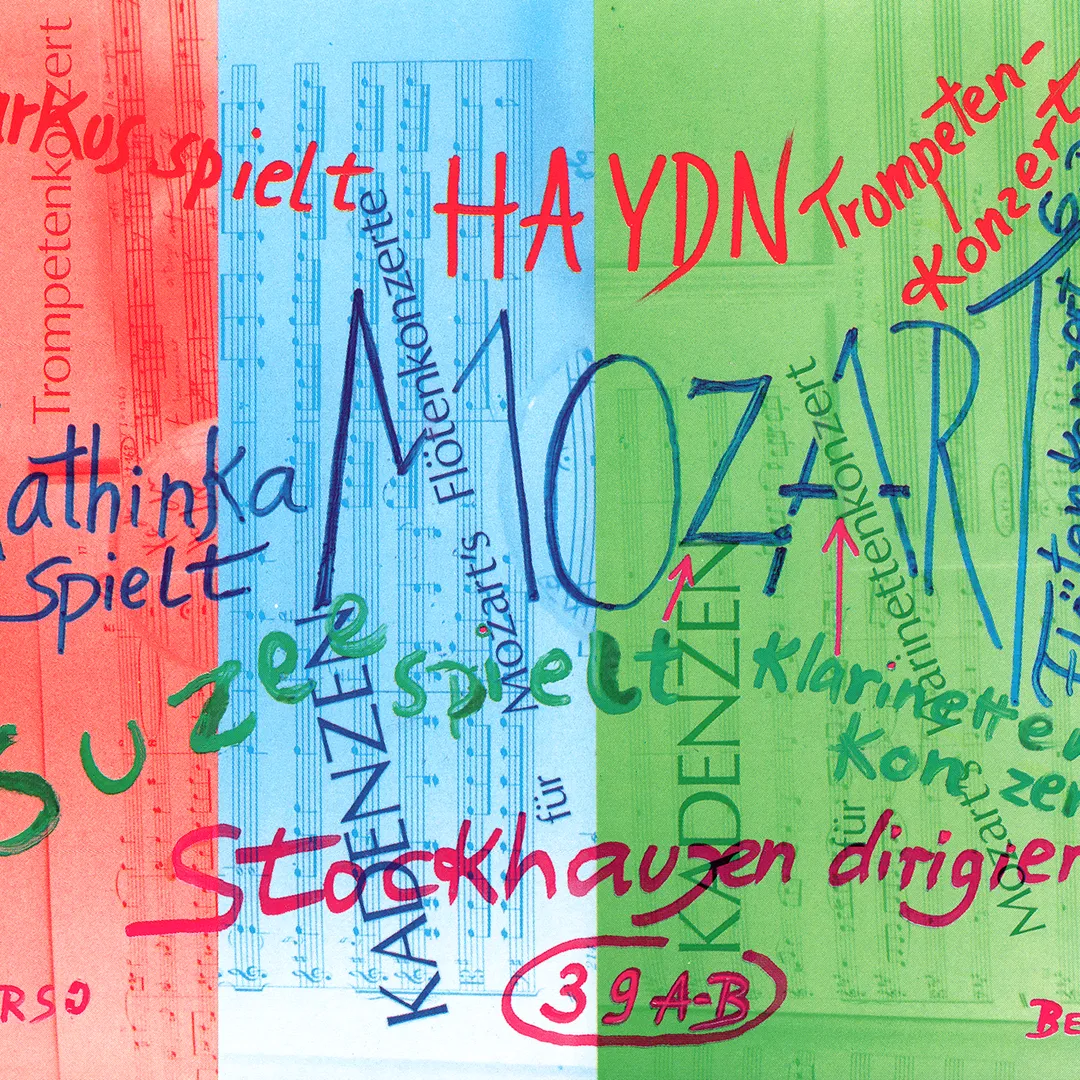 arkus spielt HAYDN Trompeten-
Konzert
athinka MOZART Flötenkonzert
spielt
Suzee spielt Klarinetten
Konzer
Stockhausen dirigier
39A-B
ERSO
BE
Trompetenkonzert
KADENZEN für Mozart's Flötenkonzerte
KADENZEN für Mozarts Klarinettenkonzert